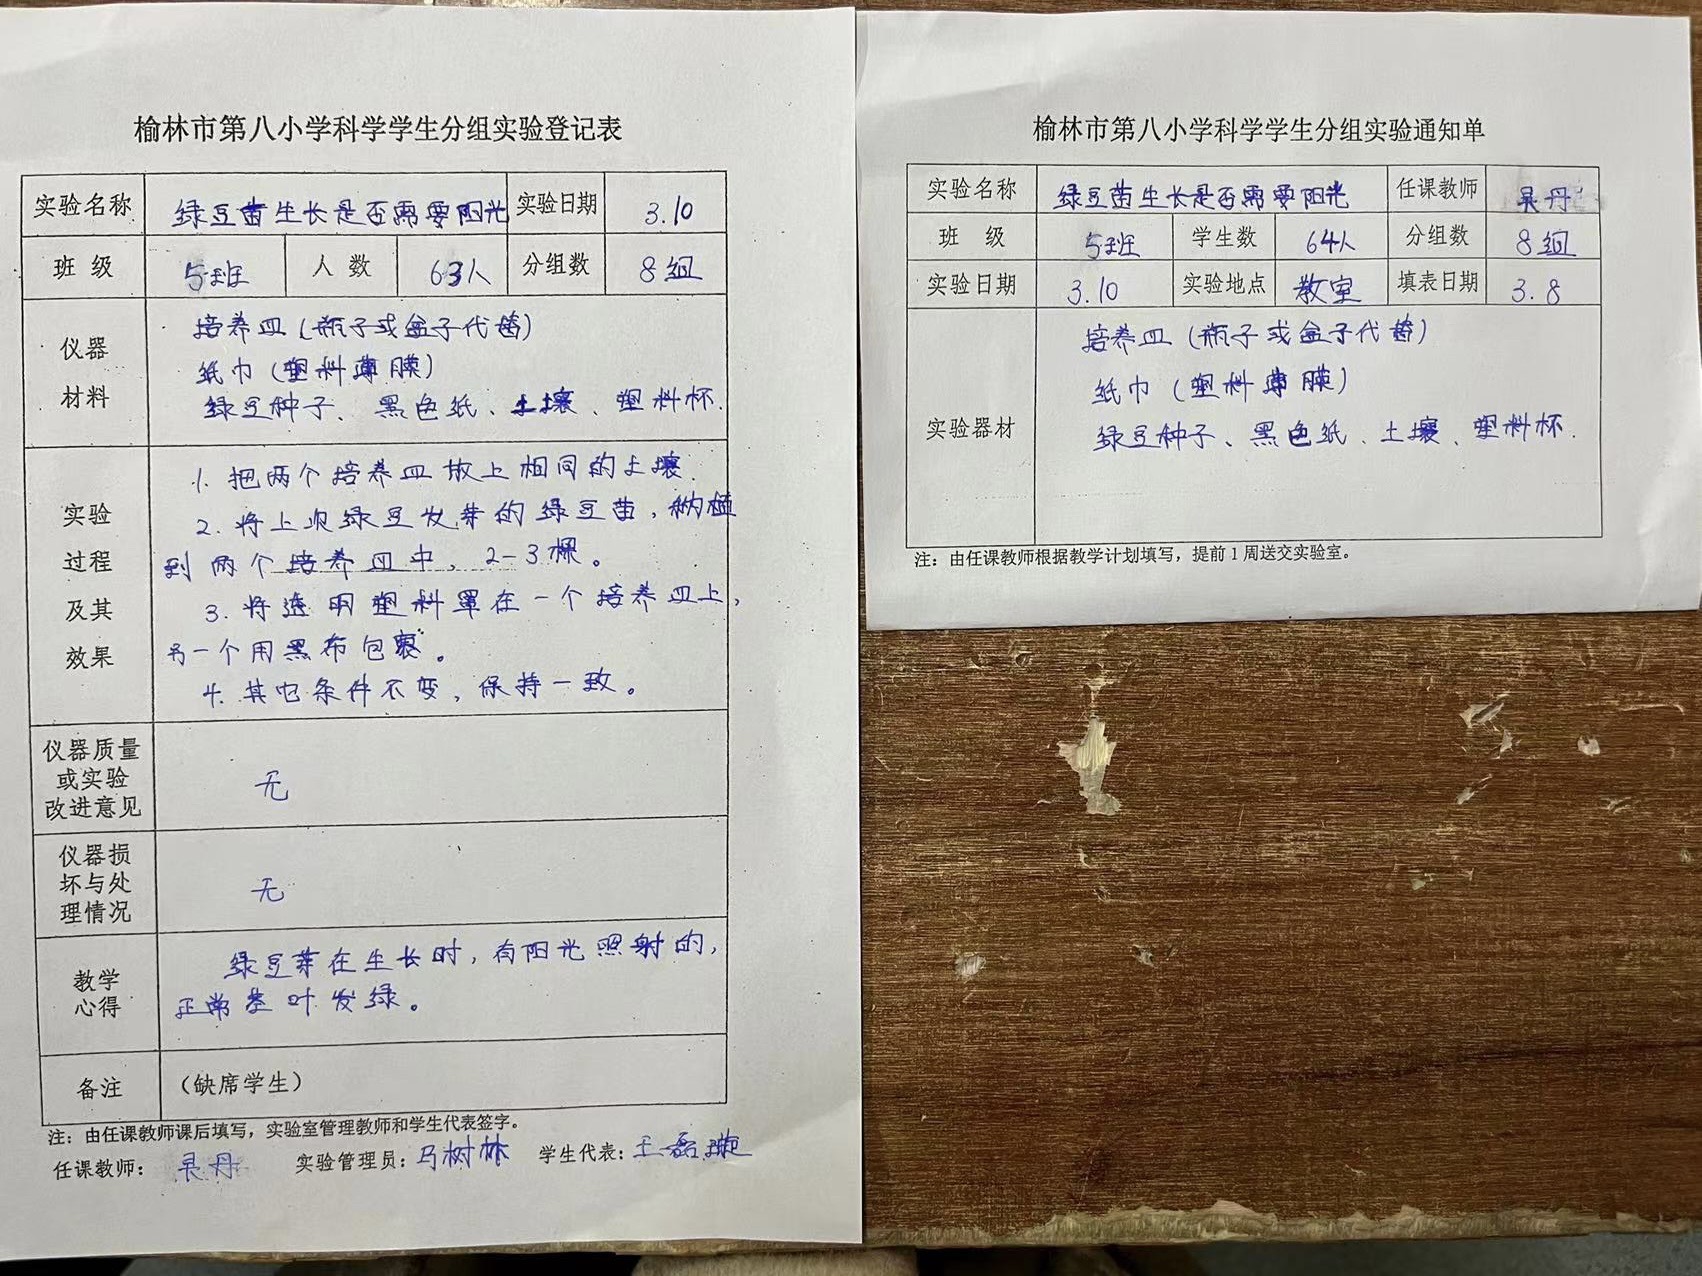 榆林市第八小学科学学生分组实验登记表
实验名称 绿豆苗生长是否需要阳光 实验日期 3.10
班 级 5班 人 数 63人 分组数 8组
仪器
材料
培养皿（瓶子或盒子代替）
纸巾（塑料薄膜）
绿豆种子、黑色纸、土壤、塑料杯.
实验
过程
及其
效果
1. 把两个培养皿放上相同的土壤.
2. 将上次绿豆发芽的绿豆苗，移植
到两个培养皿中，2-3棵。
3. 将透明塑料罩在一个培养皿上，
另一个用黑布包裹。
4. 其它条件不变，保持一致。
仪器质量
或实验
改进意见
无
仪器损
坏与处
理情况
无
教学
心得
绿豆芽在生长时，有阳光照射的，
正常茎叶发绿。
备注 （缺席学生）
注：由任课教师课后填写，实验室管理教师和学生代表签字。
任课教师： 丹 实验管理员：马树林 学生代表：王磊
榆林市第八小学科学学生分组实验通知单
实验名称 绿豆苗生长是否需要阳光 任课教师 丹
班 级 5班 学生数 64人 分组数 8组
实验日期 3.10 实验地点 教室 填表日期 3.8
实验器材
培养皿（瓶子或盒子代替）
纸巾（塑料薄膜）
绿豆种子、黑色纸、土壤、塑料杯.
注：由任课教师根据教学计划填写，提前1周送交实验室。